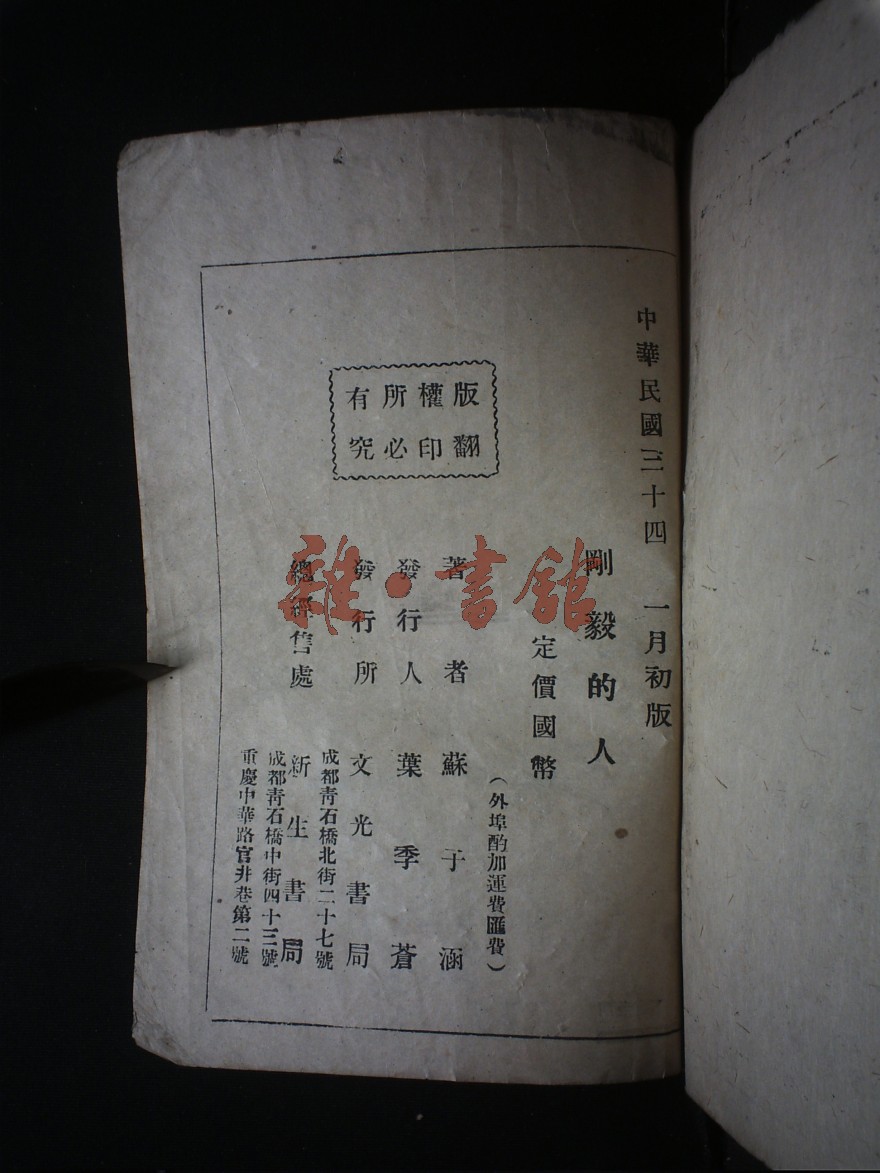 中華民國三十四 一月初版
剛毅的人
定價國幣
（外埠酌加運費匯費）
著者 蘇子涵
發行人 葉季蒼
發行所 文光書局
成都靑石橋北街二十七號
總經售處 新生書局
成都靑石橋中街四十三號
重慶中華路官井巷第二號
版權所有
翻印必究
雜·書館